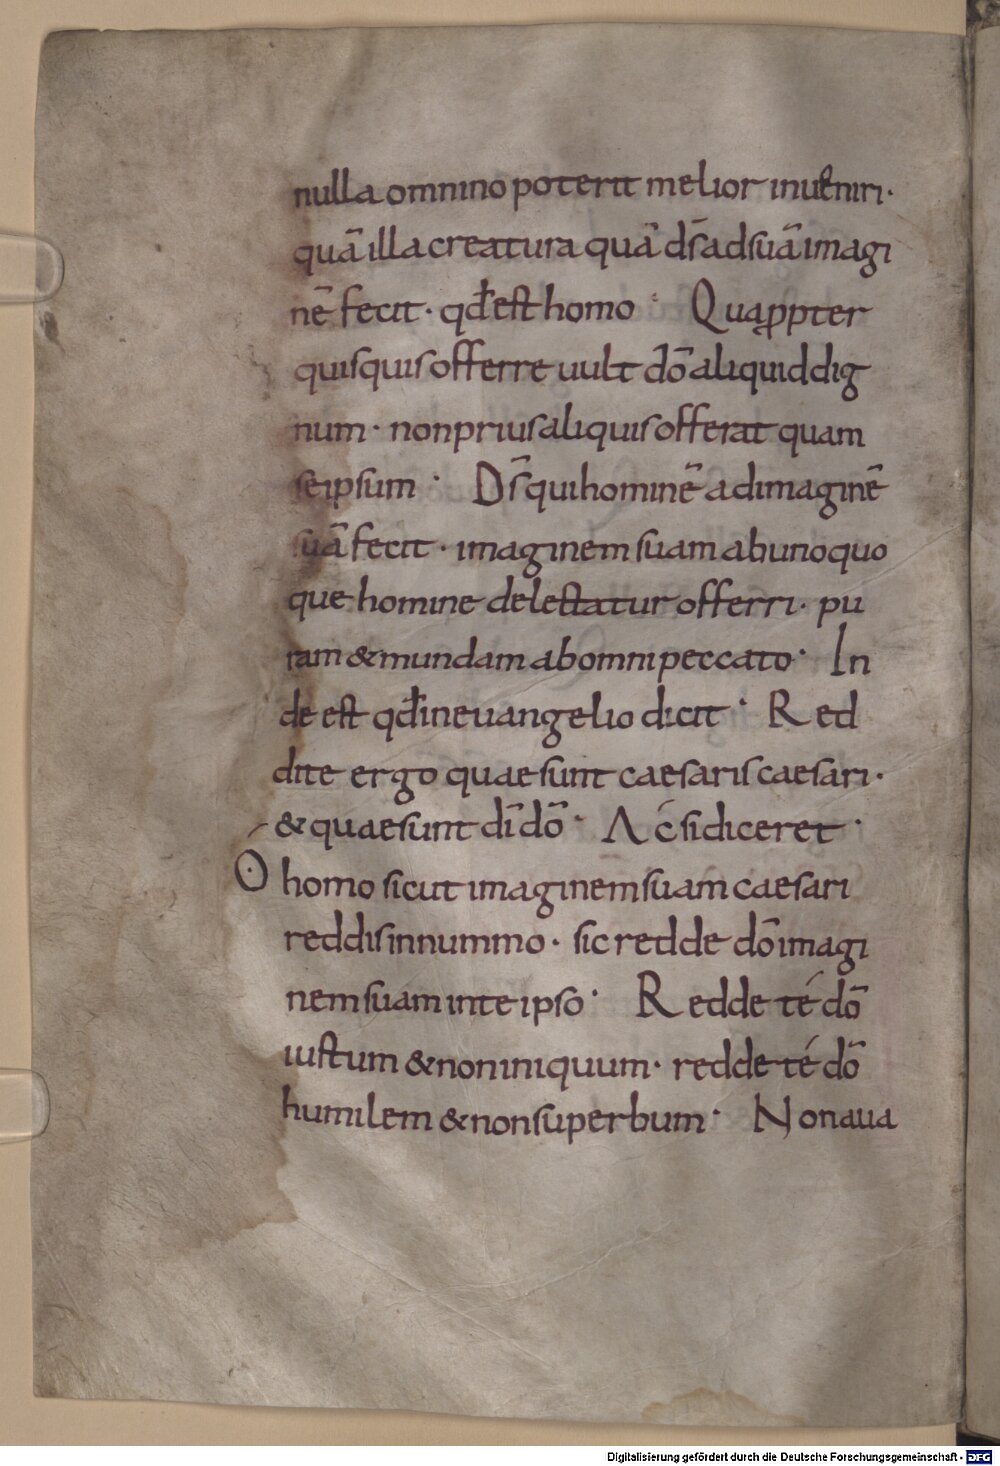 nulla omnino poterit melior inueniri·
quā illa creatura quā dr̄s ad suā imagi
nē fecit· qđ est homo · Quapppter
quisquis offerre uult dō aliquid dig
num· non prius aliquis offerat quam
seipsum · Ds̄ qui hominē ad imaginē
suā fecit· imaginem suam ab unoquo
que homine delectatur offerri· pu
ram & mundam ab omni peccato· In
de est qđ in euangelio dicit · Red
dite ergo quae sunt caesaris caesari·
& quae sunt dī dō · Ac si diceret ·
O homo sicut imaginem suam caesari
reddis in nummo· sic redde dō imagi
nem suam in te ipso· Redde té dō
iustum & non iniquum· redde té dō
humilem & non superbum· Non aua
Digitalisierung gefördert durch die Deutsche Forschungsgemeinschaft - DFG